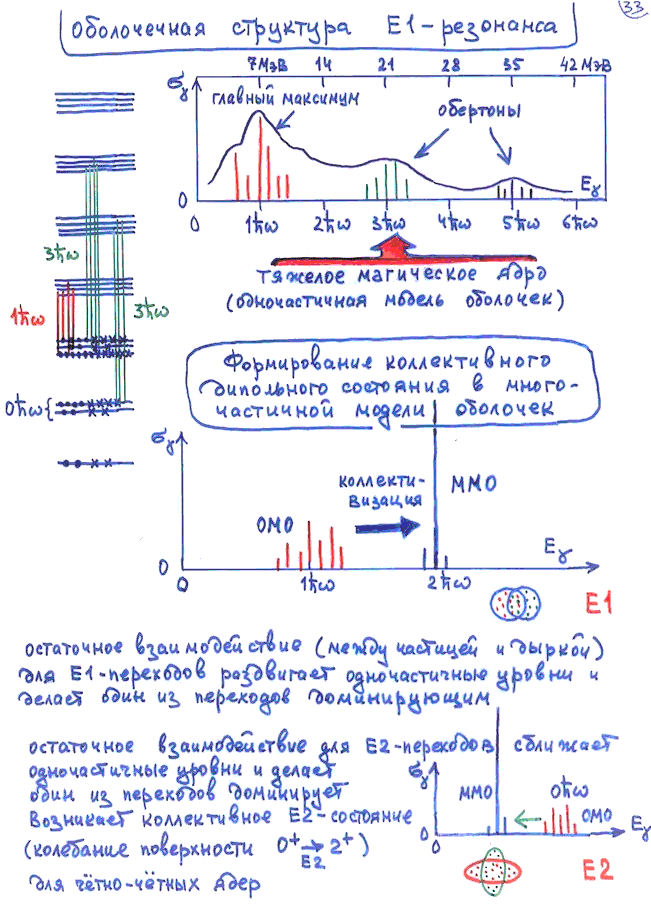 33
оболочечная структура E1-резонанса
7МэВ 14 21 28 35 42 МэВ
σγ
главный максимум
обертоны
Eγ
0
0 1ħω 2ħω 3ħω 4ħω 5ħω 6ħω
3ħω
1ħω
3ħω
0ħω{
тяжелое магическое ядро
(одночастичная модель оболочек)
Формирование коллективного
дипольного состояния в много-
частичной модели оболочек
σγ
коллекти-
визация
ММО
ОМО
Eγ
0
0 1ħω 2ħω
E1
остаточное взаимодействие (между частицей и дыркой)
для E1-переходов раздвигает одночастичные уровни и
делает один из переходов доминирующим
остаточное взаимодействие для E2-переходов сближает
одночастичные уровни и делает
один из переходов доминирует
Возникает коллективное E2-состояние
(колебание поверхности 0⁺ → 2⁺)
E2
для чётно-чётных ядер
σγ
ММО
0ħω
ОМО
Eγ
0
0
E2